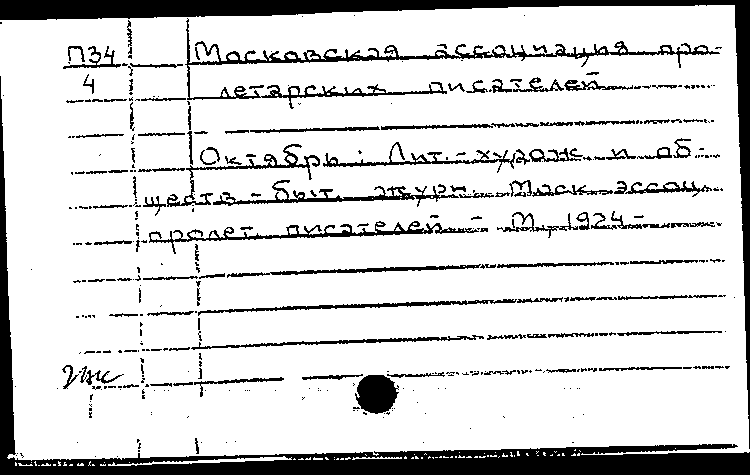 П34 Московская ассоциация про-
4 летарских писателей
Октябрь: Лит.-худож и об-
ществ-быт. журн. Моск ассоц.
пролет. писателей - М, 1924-